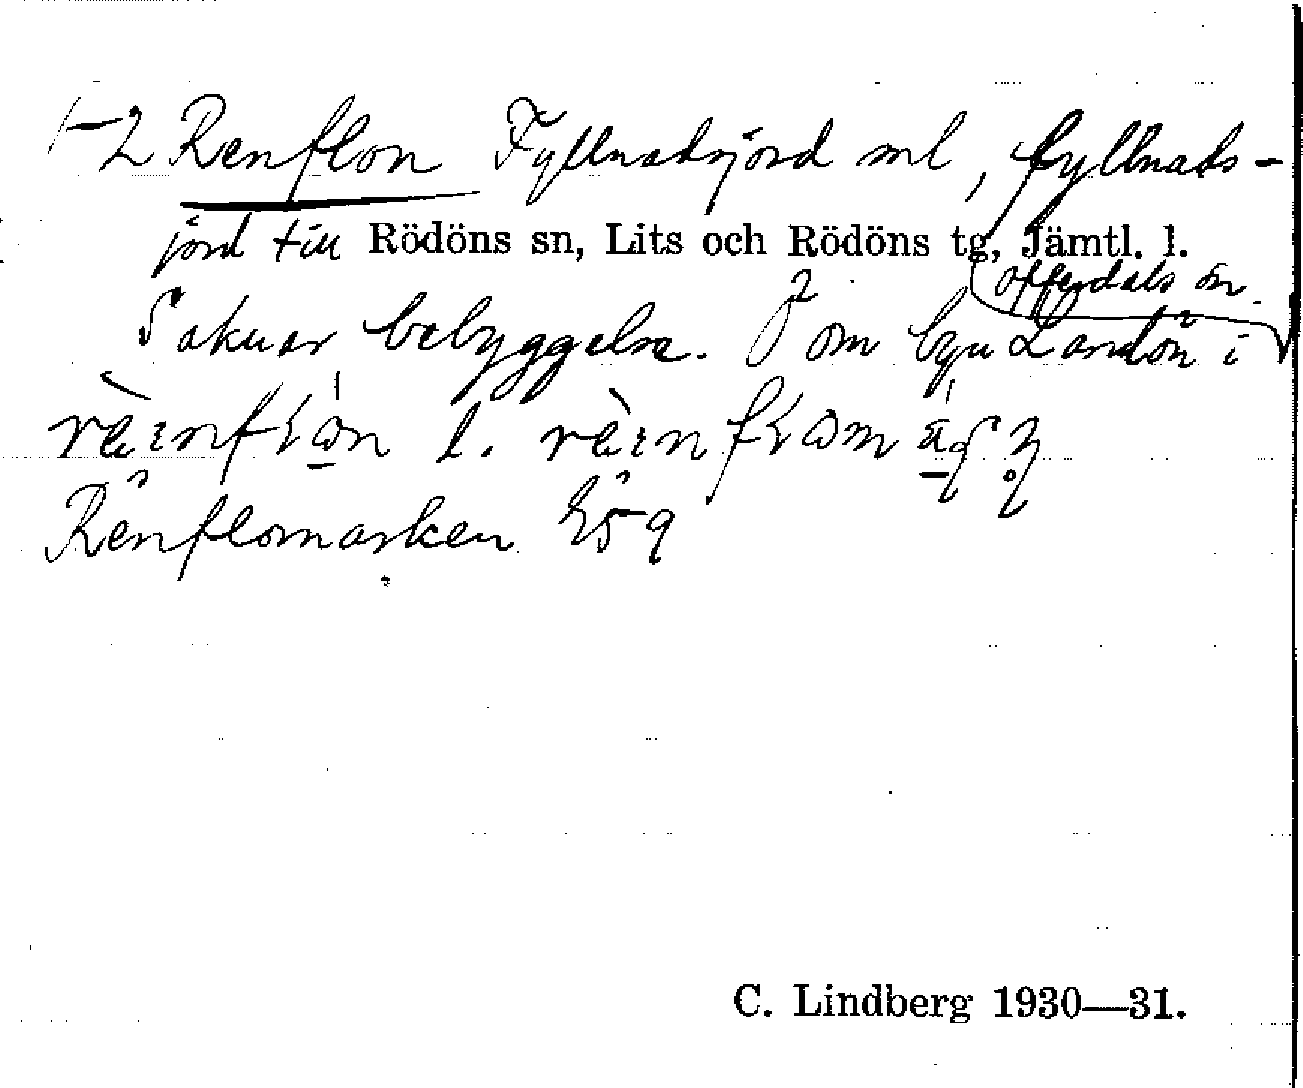 1-2 Renflon Fyllnadsjord ml, fyllnads-
jord till Rödöns sn, Lits och Rödöns tg, Jämtl. l.
Offerdals sn.
Saknar bebyggelse. J om byn Landön i
l.
Renflomarken
C. Lindberg 1930—31.